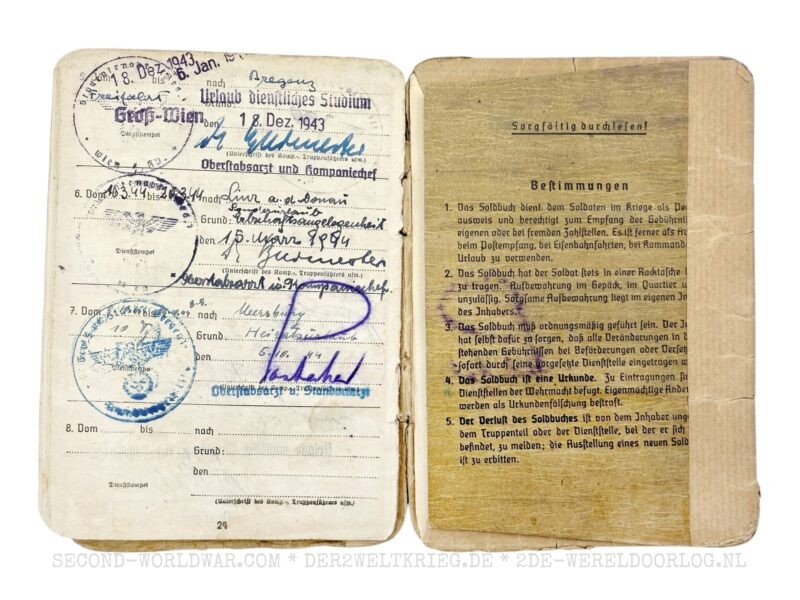 18. Dez. 1943
6. Jan.
bis
nach Bregenz
Freifahrt
Grund:
Urlaub dienstliches Studium
Groß-Wien
den 18. Dez. 1943
Dienststempel
(Unterschrift des Komp., Truppenführers usw.)
Oberstabsarzt und Kompaniechef
6. Vom
nach Linz a. d. Donau
Grund: Erbschaftsangelegenheit
den 15. März 1944
Dienststempel
(Unterschrift des Komp., Truppenführers usw.)
Oberstabsarzt u. Kompaniechef.
7.
nach Meersburg
Grund:
5.10. 44
Dienststempel
Oberstabsarzt u. Standortarzt
8. Vom bis nach
Grund:
den
Dienststempel
(Unterschrift des Komp., Truppenführers usw.)
24
Sorgfältig durchlesen!
Bestimmungen
1. Das Soldbuch dient dem Soldaten im Kriege als Pe
ausweis und berechtigt zum Empfang der Gebührni
eigenen oder bei fremden Zahlstellen. Es ist ferner als A
beim Postempfang, bei Eisenbahnfahrten, bei Komman
Urlaub zu verwenden.
2. Das Soldbuch hat der Soldat stets in einer Rocktasche
zu tragen. Aufbewahrung im Gepäck, im Quartier u
unzulässig. Sorgsame Aufbewahrung liegt im eigenen In
des Inhabers.
3. Das Soldbuch muß ordnungsmäßig geführt sein. Der I
hat selbst dafür zu sorgen, daß alle Veränderungen in d
stehenden Gebührnissen bei Beförderungen oder Verset
sofort durch seine vorgesetzte Dienststelle eingetragen w
4. Das Soldbuch ist eine Urkunde. Zu Eintragungen sind
Dienststellen der Wehrmacht befugt. Eigenmächtige Änder
werden als Urkundenfälschung bestraft.
5. Der Verlust des Soldbuches ist von dem Inhaber unge
dem Truppenteil oder der Dienststelle, bei der er sich
befindet, zu melden; die Ausstellung eines neuen Sold
ist zu erbitten.
SECOND-WORLDWAR.COM * DER2WELTKRIEG.DE * 2DE-WERELDOORLOG.NL